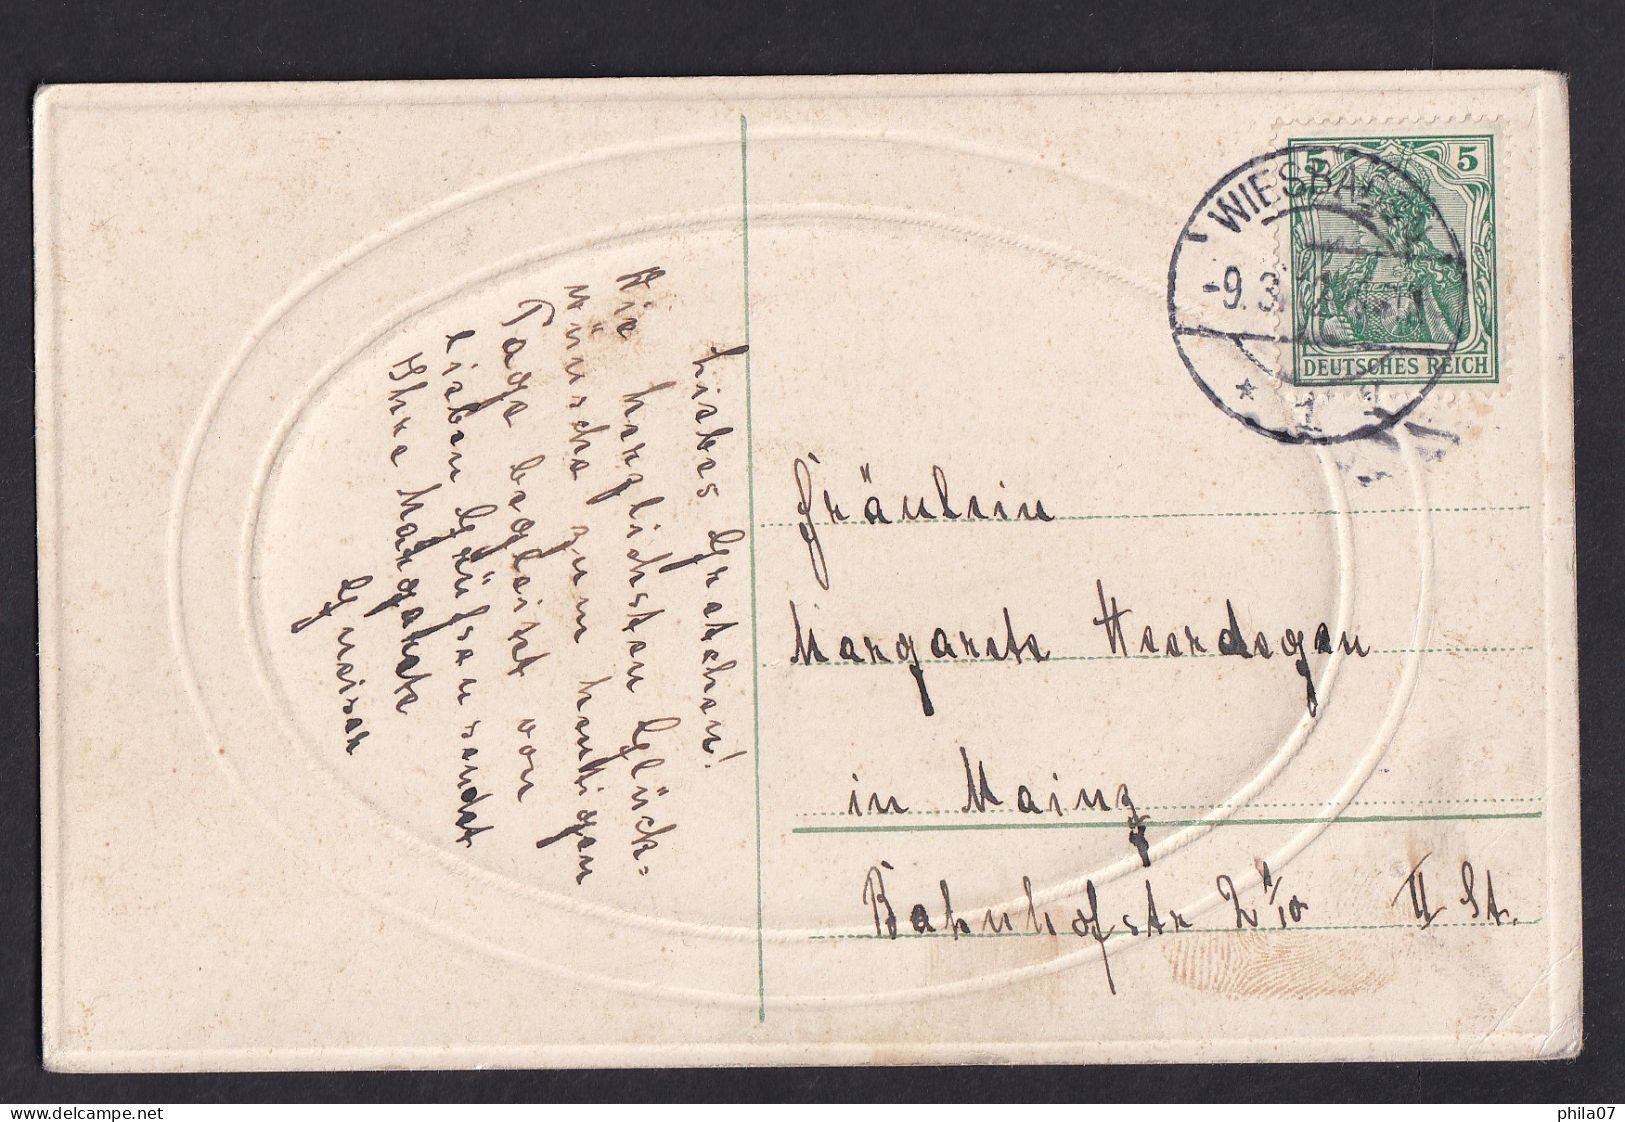 Liebes Gretchen!
Die herzlichsten Glück-
wünsche zum heutigen
Tage begleitet von
lieben Grüßen sendet
Ihre Margarete
WIESBADEN
-9.3.
* 1 a
5 5
DEUTSCHES REICH
Fräulein
Margarete Heerdegen
in Mainz
Bahnhofstr 2 1/10 II St.
phila07